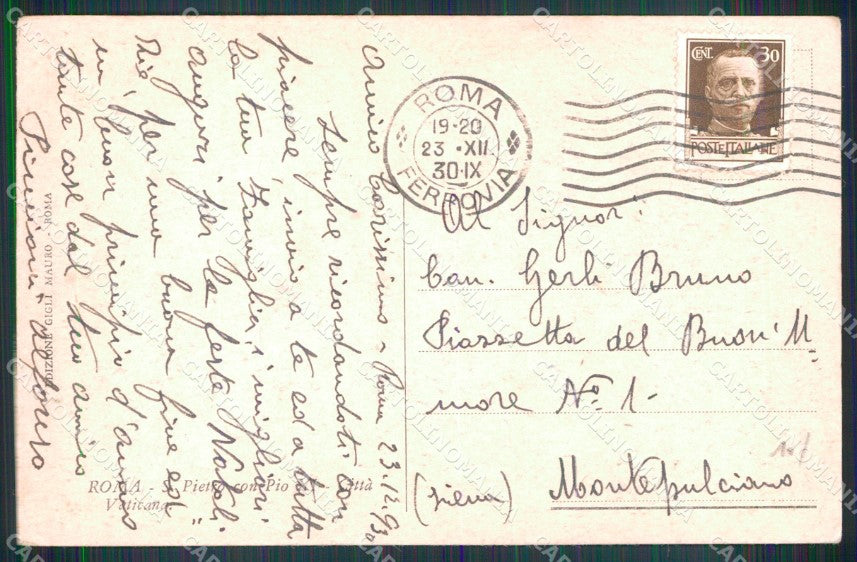 Amico Carissimo - Roma 23.12.930
Sempre ricordandoti con
piacere, invio a te ed a tutta
la tua famiglia, i migliori
auguri per le feste Natali-
zie, per una buona fine ed
un buon principio d'anno
tante cose dal tuo amico
Alfonso
EDIZIONE GIGLI MAURO - ROMA
ROMA - S. Pietro con Pio Città
Vaticana
ROMA
19-20
23 ·XII
30·IX
FERROVIA
CENT. 30
POSTE ITALIANE
Al Signor:
Can. Gerli Bruno
Piazzetta del Buon'U-
more No 1-
(Siena) Montepulciano
CARTOLINOMANIA